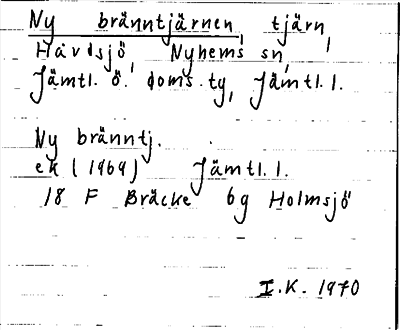 Ny bränntjärnen, tjärn,
Håvdsjö, Nyhems sn,
Jämtl. ö. doms. ty, Jämtl. l.
Ny bränntj.
ek (1969) Jämtl. l.
18 F Bräcke 6g Holmsjö
I.K. 1970